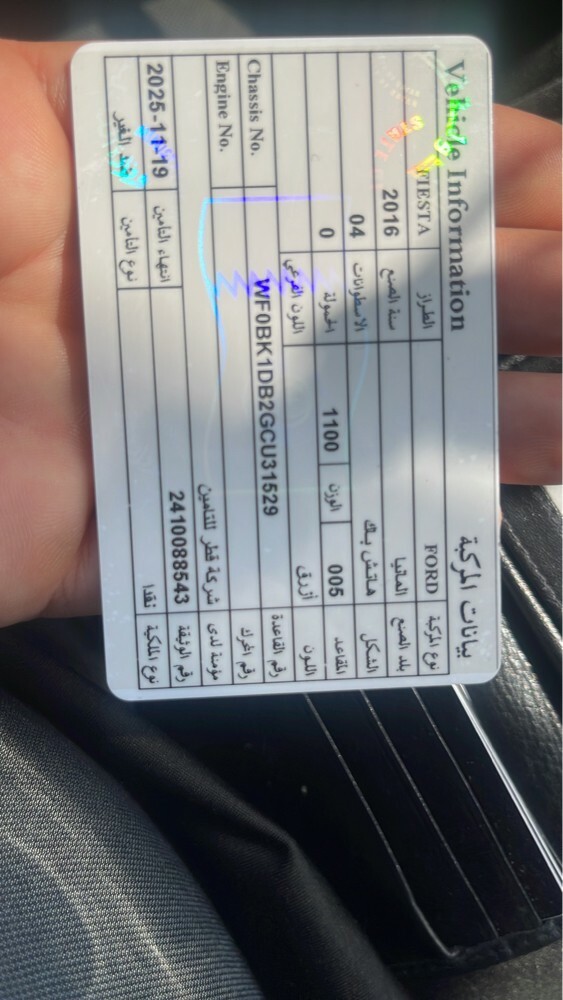 Vehicle Information بيانات المركبة
نوع المركبة FORD الطراز FIESTA
بلد الصنع المانيا سنة الصنع 2016
الشكل هاتش باك الاسطوانات 04
المقاعد 005 الوزن 1100 الحمولة 0
اللون أزرق اللون الفرعي
رقم القاعدة WF0BK1DB2GCU31529 Chassis No.
رقم المحرك Engine No.
مؤمنة لدى شركة قطر للتامين
رقم الوثيقة 2410088543 انتهاء التامين 2025-11-19
نوع الملكية نقدا نوع التامين ضد الغير